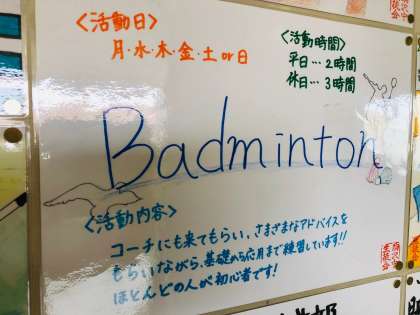 <活動日>
月・水・木・金・土or日
<活動時間>
平日…2時間
休日…3時間
Badminton
<活動内容>
コーチにも来てもらい、さまざまなアドバイスを
もらいながら、基礎から応用まで練習しています!!
ほとんどの人が初心者です!